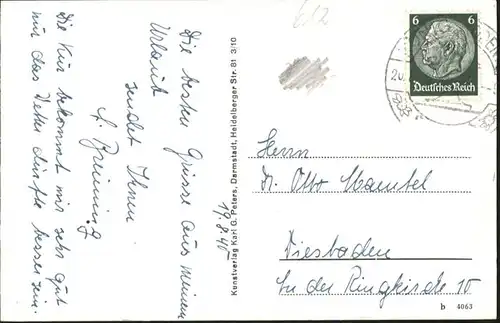 E12
Die besten Grüsse aus meinem
Urlaub
sendet Ihnen
Die Kur bekommt mir sehr gut
nur das Wetter dürfte besser sein.
19.8.40
Kunstverlag Karl G. Peters, Darmstadt, Heidelberger Str. 81 3/10
6 6
Deutsches Reich
Herrn
Dr. Otto
Wiesbaden
An der Ringkirche 10
b 4063